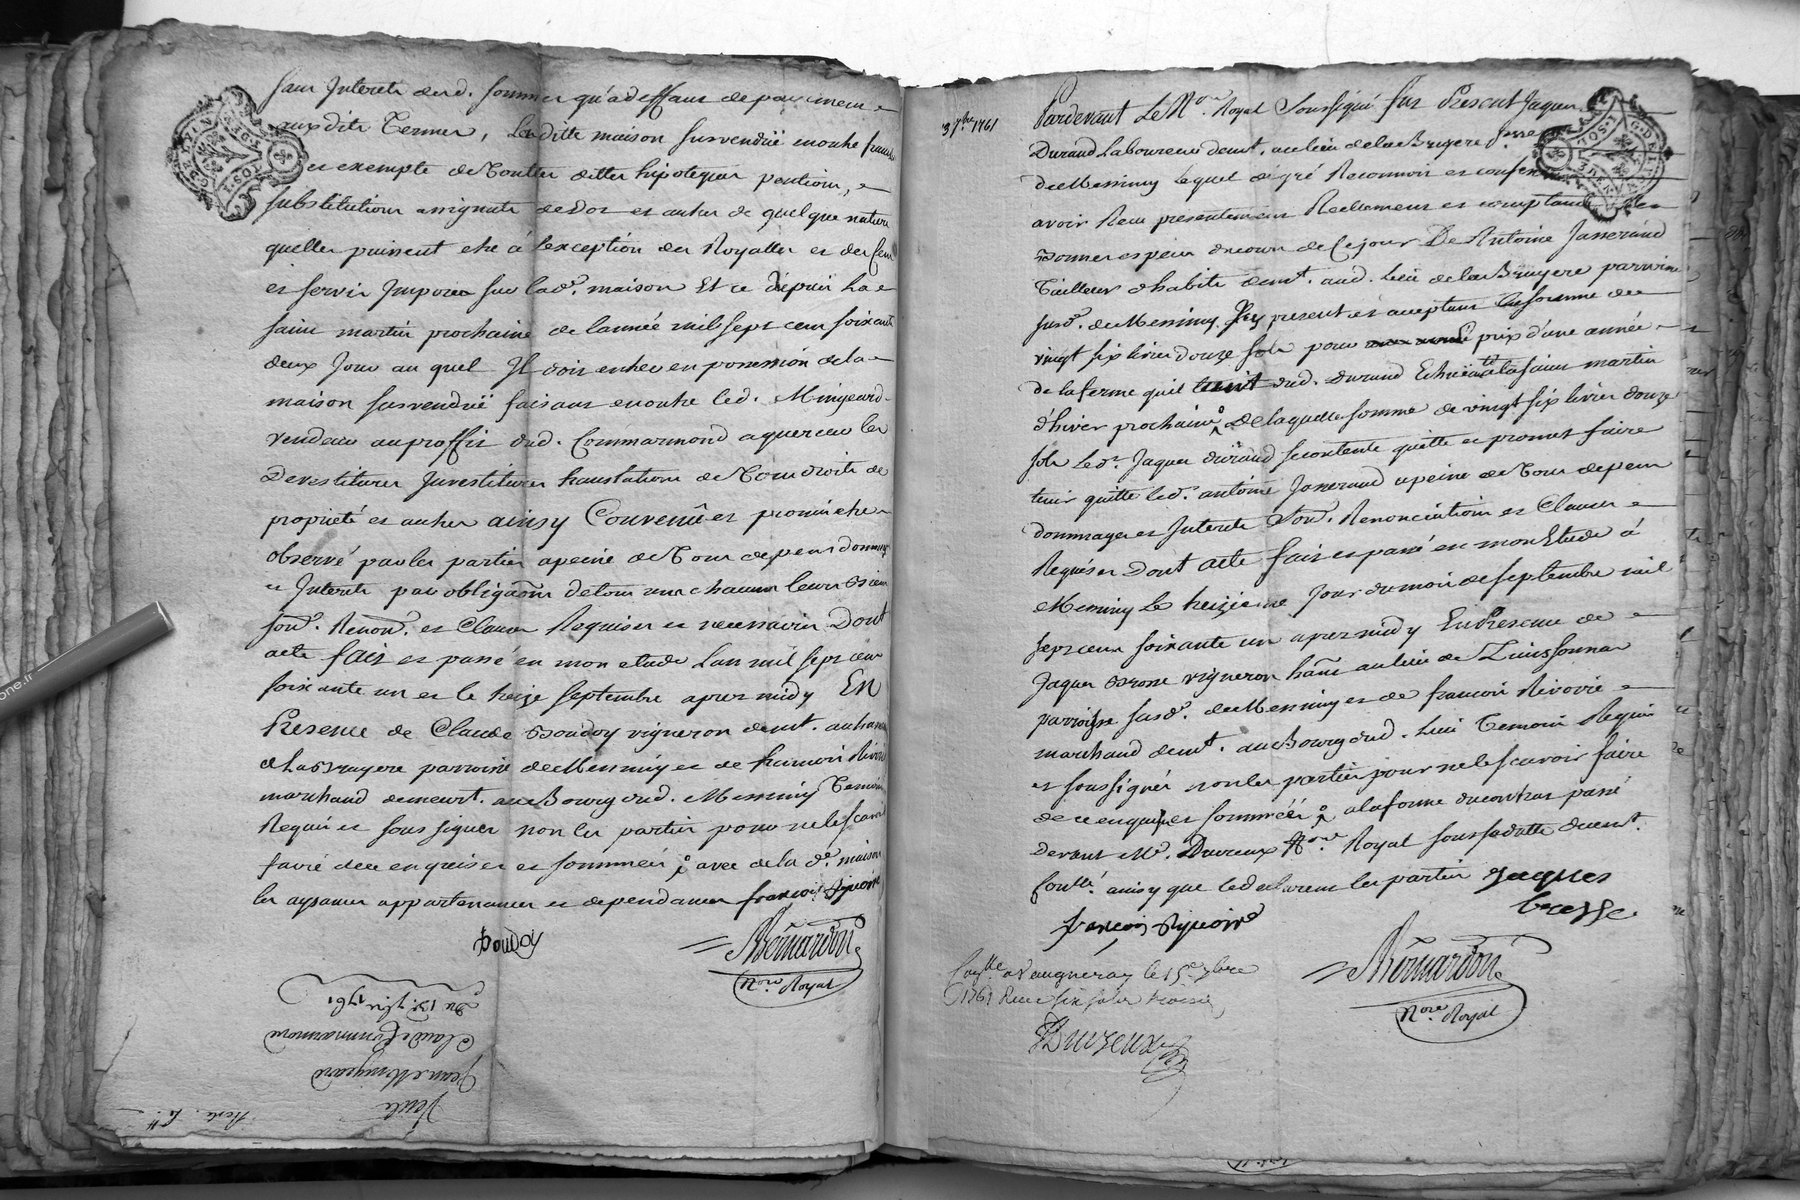 sans Interets desd. sommes qu'a deffaut de payement
auxdits Termes, Laditte maison susvendüe moulte franche
et exempte de Toutes dettes hipoteques pentions,
substitutions assignats de Dot et autres de quelque nature
quelles puissent etre à l'exception des Royalles et des Cens
et servis Imposés sur lad.e maison Et ce depuis La
saint martin prochaine de lannée mil sept cens soixante
deux Jour au quel Il doit entrer en possession de la
maison susvendüe faisant en outre led. Mingeard
vendeur au proffit dud. Commarmond aquereur les
Devestitures Investitures translations de Tous droits de
proprieté et autres ainsy Convenu et promis etre
observé par les parties a peine de Tous depens dommages
et Interets par obligaõn de tous un chacun leurs Biens
soum.s Renon.s et Clauses Requises et necessaires Dont
acte fait et passé en mon etude Lan mil sept cens
soixante un et le treize septembre apres midy EN
Presence de Claude Boudoy vigneron demt. au hameau
de La Bruyere parroisse de Messimy et de francois Rivoire
marchand demeurt. au Bourg dud. Messimy Temoins
Requis et soussignes non les parties pour ne le scavoir
faire de ce enquises et sommées avec de la d.e maison
les aysances appartenances et dependances françois Riuoire
Boudoy
Bonnardon
No.re Royal
Du 13.e 7bre 1761
Claude Commarmond
Jean Mingeard
Vente
3 7bre 1761
Pardevant Le No.re Royal Soussigné fut Present Jaques
Durand Laboureur demt. au lieu de la Bruyere P.sse
de Messimy Lequel de gré Reconnoit et confesse
avoir Receu presentement Reellement et comptant
Bonnes especes du cours de ce jour De Antoine Jasserand
Tailleur d'habits demt. aud. Lieu de la Bruyere parroisse
susd. de Messimy Icy present et aceptant La somme de
vingt six livres douze sols pour prix d'une année
de la ferme quil tient dud. Durand Echeüe a la saint martin
d'hiver prochaine de laquelle somme de vingt six livres douze
sols Led.t Jaques durand se contente quitte et promet faire
tenir quitte led.t antoine Jasserand a peine de Tous depens
dommages et Interets Soum. Renonciations et Clauses
Requises Dont acte fait et passé en mon Etude à
Messimy Le treizieme Jour du mois de septembre mil
sept cens soixante un apres midy En Presence de
Jaques Brosse vigneron habt. au lieu de
parroisse susd.e de Messimy et de francois Rivoire
marchand demt. au Bourg dud. Lieu Temoins Requis
et soussignés non les parties pour ne le scavoir faire
de ce enquises et sommées a la forme du contrat passé
devant M.e Duvreux No.re Royal sous sa datte duemt.
Conllé. ainsy que le declarent les parties Jaques
brosse
françois Riuoire
Bonnardon
No.re Royal
Conllé a Vaugneray le 15e 7bre
1761 Receu six sols